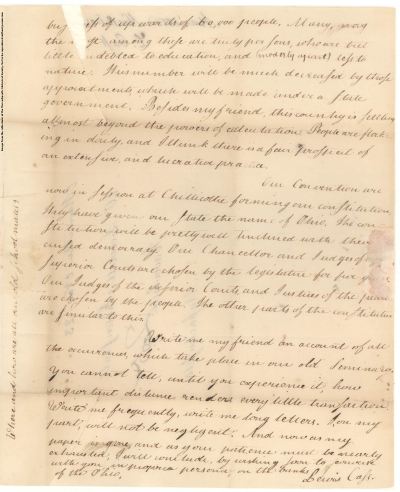 of upwards of 60,000 people. Many, nay
the most among these are lawyers, who are but
little indebted to education, and (modesty apart) less to
nature. This number will be much decreased by those
appointments, which will be made under a State
government. Besides my friend, this country is settling
almost beyond the powers of calculation. People are pour-
ing in daily, and I think there is a fair prospect of
an extensive, and lucrative practice.
Our Convention are
now in Session at Chillicothe forming our constitution
They have given our State the name of Ohio. The con-
stitution will be pretty well tinctured with their
cursed democracy. Our Chancellor and Judges of
Superior Courts are chosen by the legislature for five years
Our Judges of the inferior Courts and Justices of the peace
are chosen by the people. The other parts of the constitution
are similar to this.
Write me my friend an account of all
the occurrences, which take place in our old Seminary,
You cannot tell, until you experience it, how
important distance renders every little transaction.
Write me frequently, write me long letters. For my
part, I will not be negligent. And now as my
paper is gone, and as your patience must be nearly
exhausted, I will conclude, by wishing soon to converse
with you in propria persona, on the banks
of the Ohio,
Lewis Cass.
Where and how are all our old school mates?